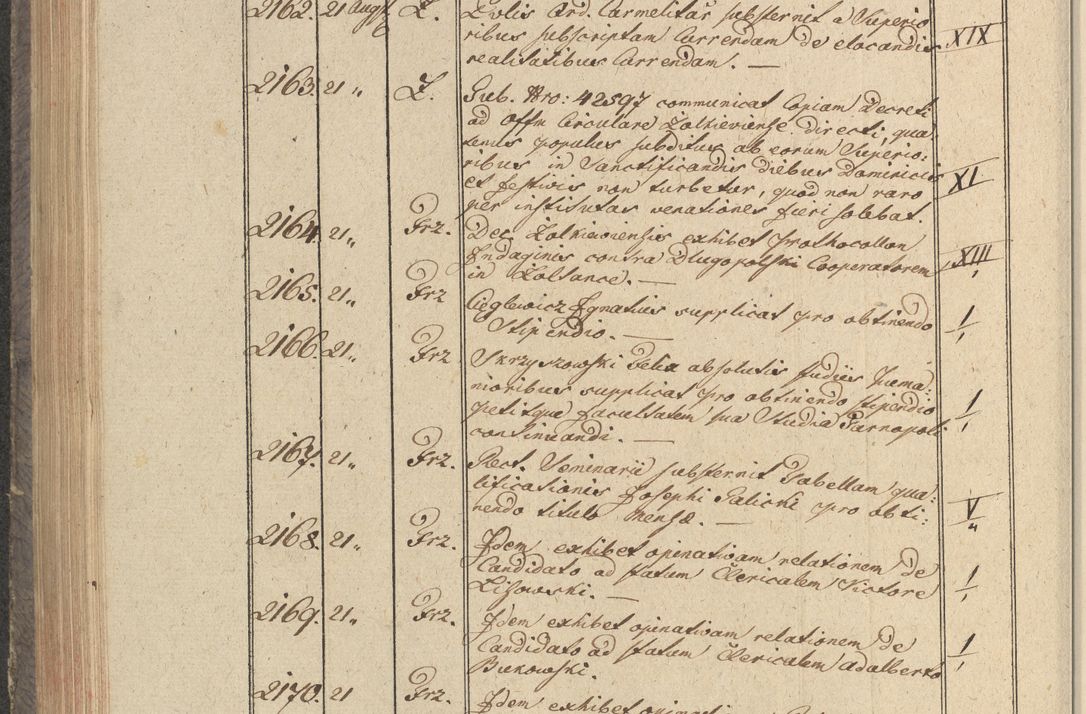 2162. 21 Augst Z. Zolis Ord. Carmelitar substernit a Superio
ribus subscriptam Currendam de elocandis XIX
realitatibus Currendam. —
2163. 21 „ Z. Gub. Nro: 42597 communicat Copiam Decreti
ad Offm Circulare Zolkieviense directi, qua
tenus populus subditus ab eorum Superio:
ribus in Sanctificandis diebus Dominicis XI
et festivis non turbetur, quod non raro
per institutas venationes fieri solebat.
2164. 21 „ Frz. Dec. Zolkieviensis exhibet Prothocollon
Indaginis contra Dlugopolski Cooperatorem XIII
in Zoltance. —
2165. 21 „ Frz Cięglewicz Ignatius supplicat pro obtinendo 1
Stipendio. —
2166. 21 „ Frz Skrzyszowski Felix absolutis studiis huma:
nioribus supplicat pro obtinendo stipendio 1
petitque facultatem sua Studia Tarnopoli
continuandi. —
2167. 21 „ Frz. Rect. Seminarii substernit Tabellam qua:
lificationis Josephi Salicki pro obti: V
nendo titulo mensæ. —
2168. 21 „ Frz. Idem exhibet opinativam relationem de
Candidato ad statum Clericalem Victore 1
Lisowski. —
2169. 21 „ Frz. Idem exhibet opinativam relationem de
Candidato ad statum Clericalem Adalberto 1
Bukowski.
2170. 21 Frz. Idem exhibet